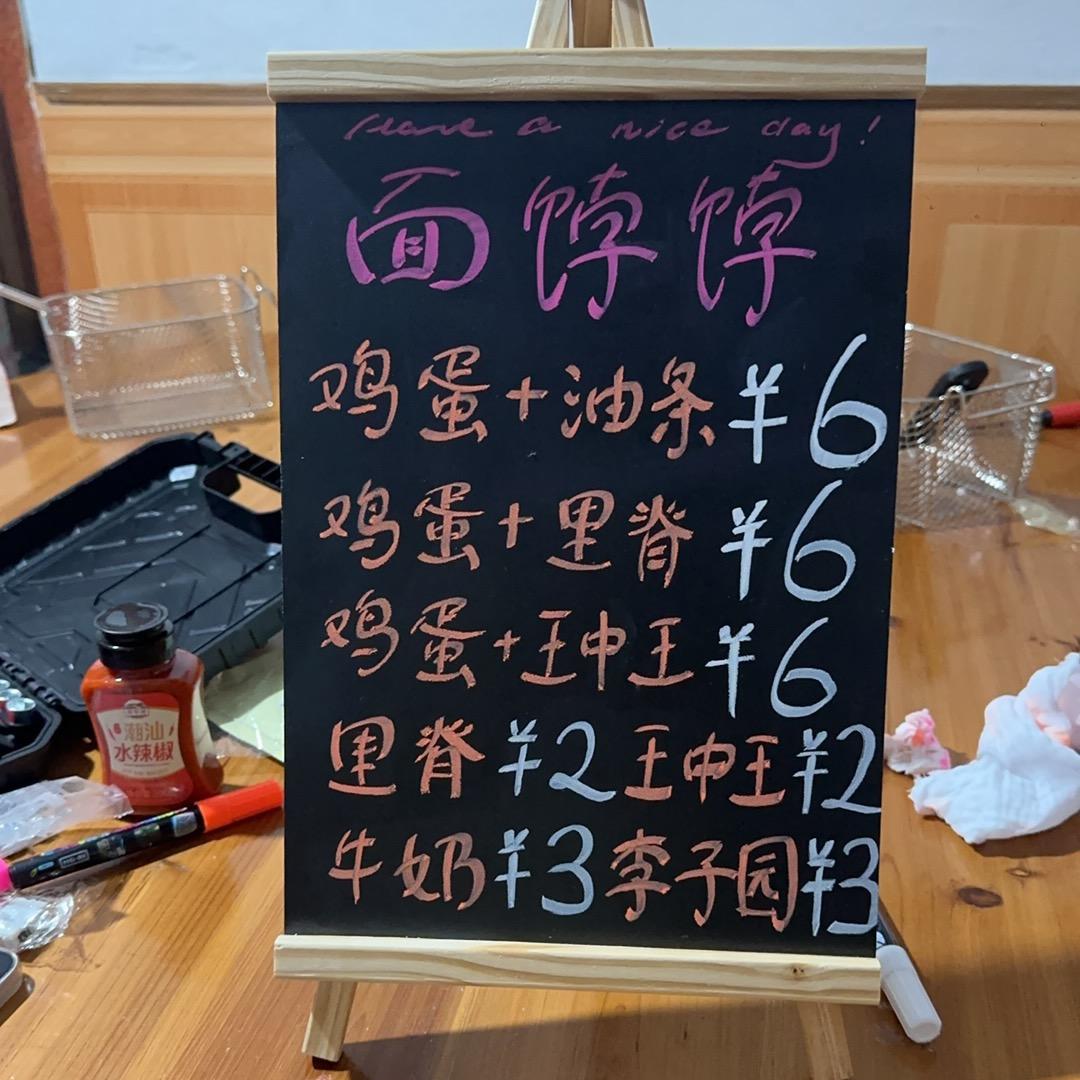 Have a nice day!
面饽饽
鸡蛋+油条¥6
鸡蛋+里脊¥6
鸡蛋+王中王¥6
里脊¥2王中王¥2
牛奶¥3李子园¥3
潮汕
水辣椒